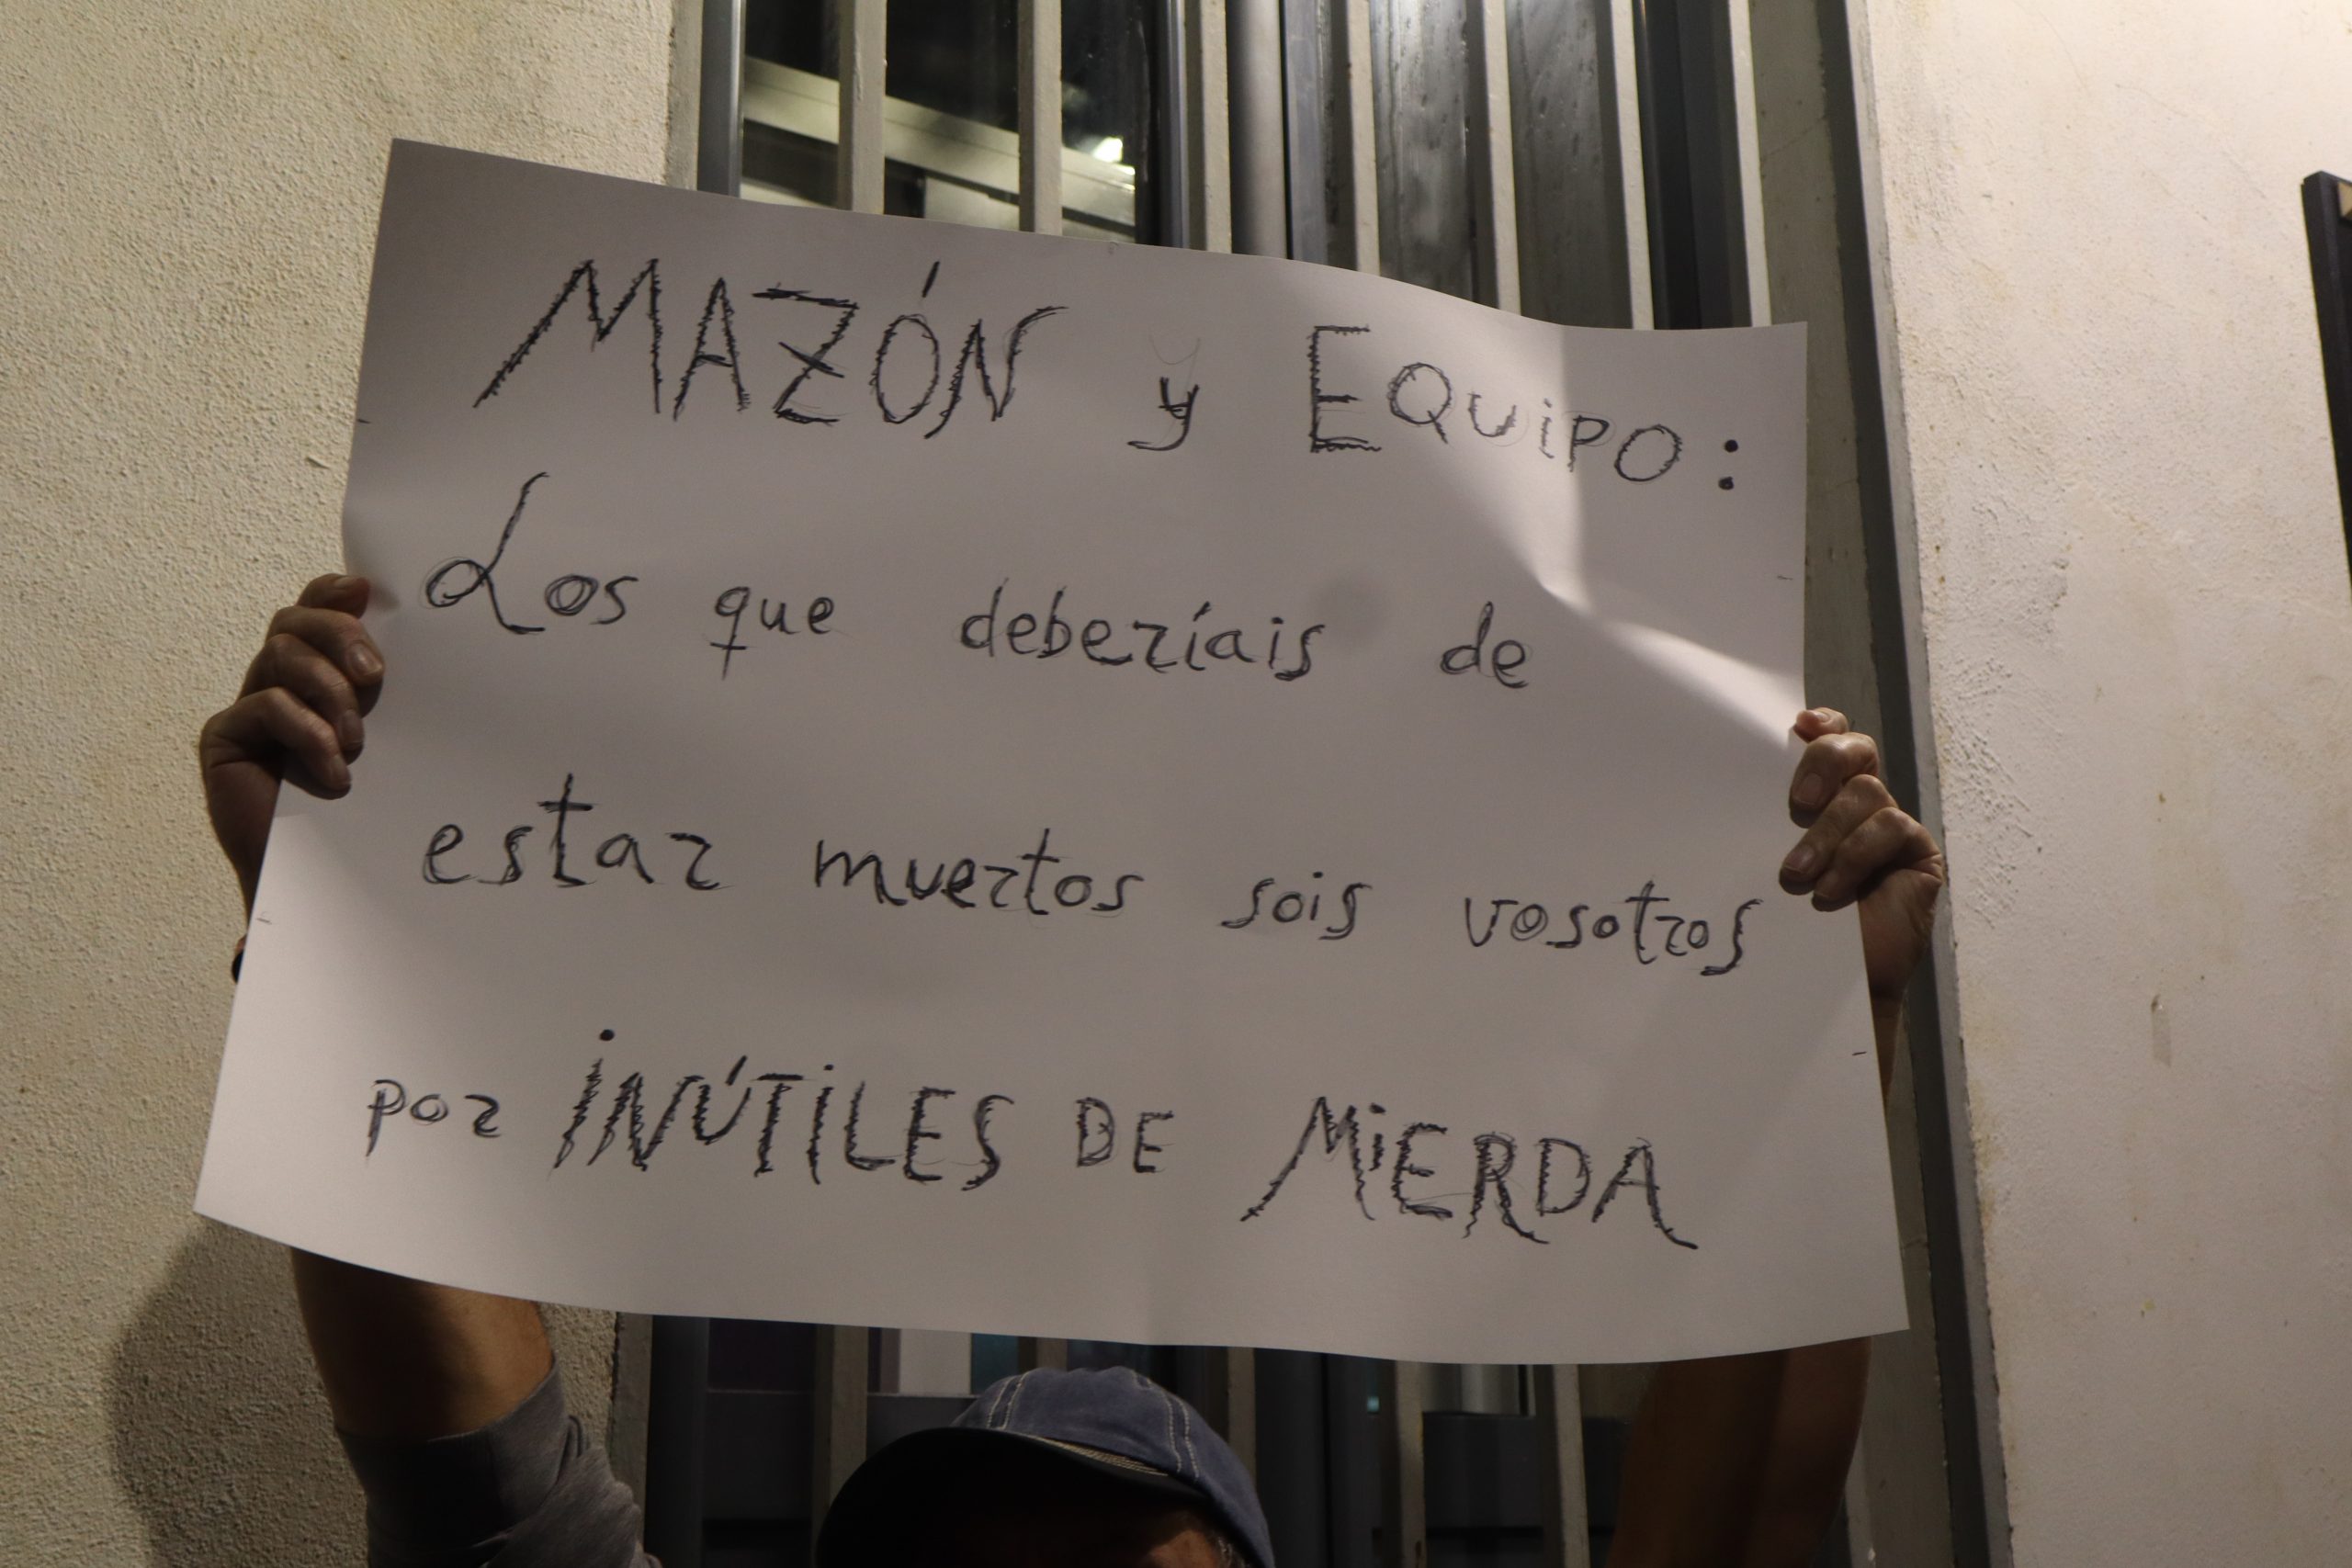 MAZÓN y EQUiPO:
Los que deberíais de
estar muertos sois vosotros
por iNÚTiLES DE MiERDA